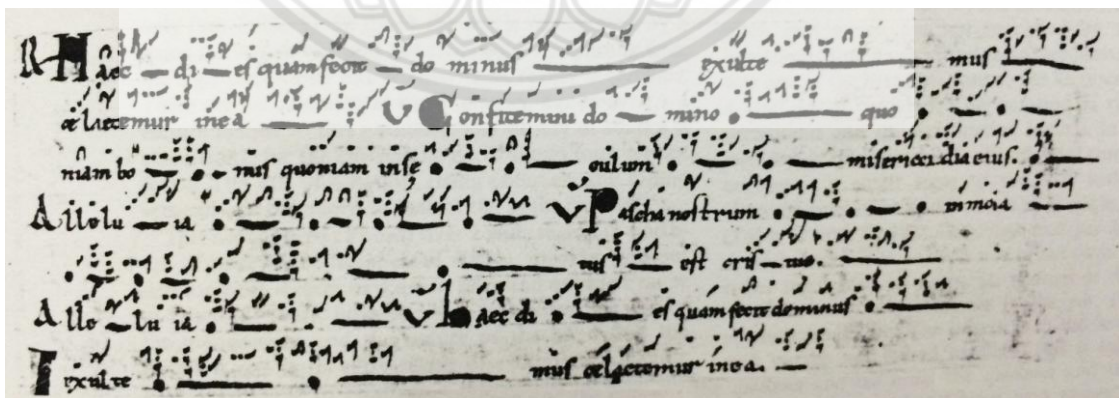 R Haec di es quam fecit do minus exulte mus
& laetemur in ea V Confitemini do mino quo
niam bo nus quoniam in sę culum misericordia eius.
Allelu ia V Pascha nostrum immola
tus est cris tus.
Alle lu ia V haec di es quam fecit dominus
exulte mus & laetemur in ea.